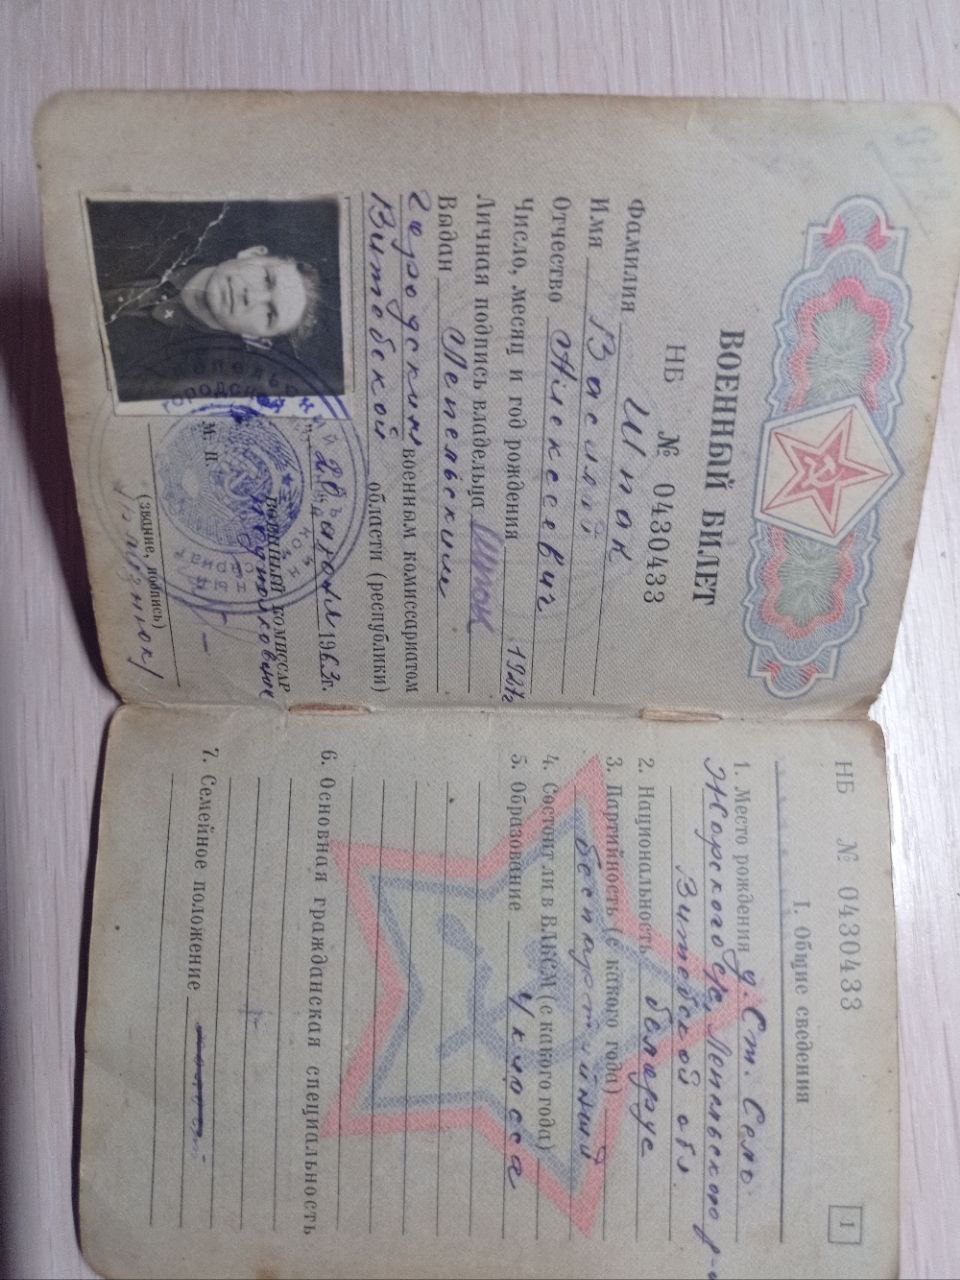 ВОЕННЫЙ БИЛЕТ
НБ № 0430433
Фамилия Шпак
Имя Василий
Отчество Алексеевич
Число, месяц и год рождения 1927г
Личная подпись владельца Шпак
Выдан Лепельским
городским военным комиссариатом
Витебской области (республики)
„20“ апреля 1963г.
М. П.
ВОЕННЫЙ КОМИССАР
подполковник
(звание, подпись)
НБ № 0430433
1
I. Общие сведения
1. Место рождения д. Ст. Село
Жорского с/с, Лепельского р-н
Витебской обл.
2. Национальность белорус
3. Партийность (с какого года)
беспартийный
4. Состоит ли в ВЛКСМ (с какого года)
5. Образование 4 класса
6. Основная гражданская специальность
7. Семейное положение